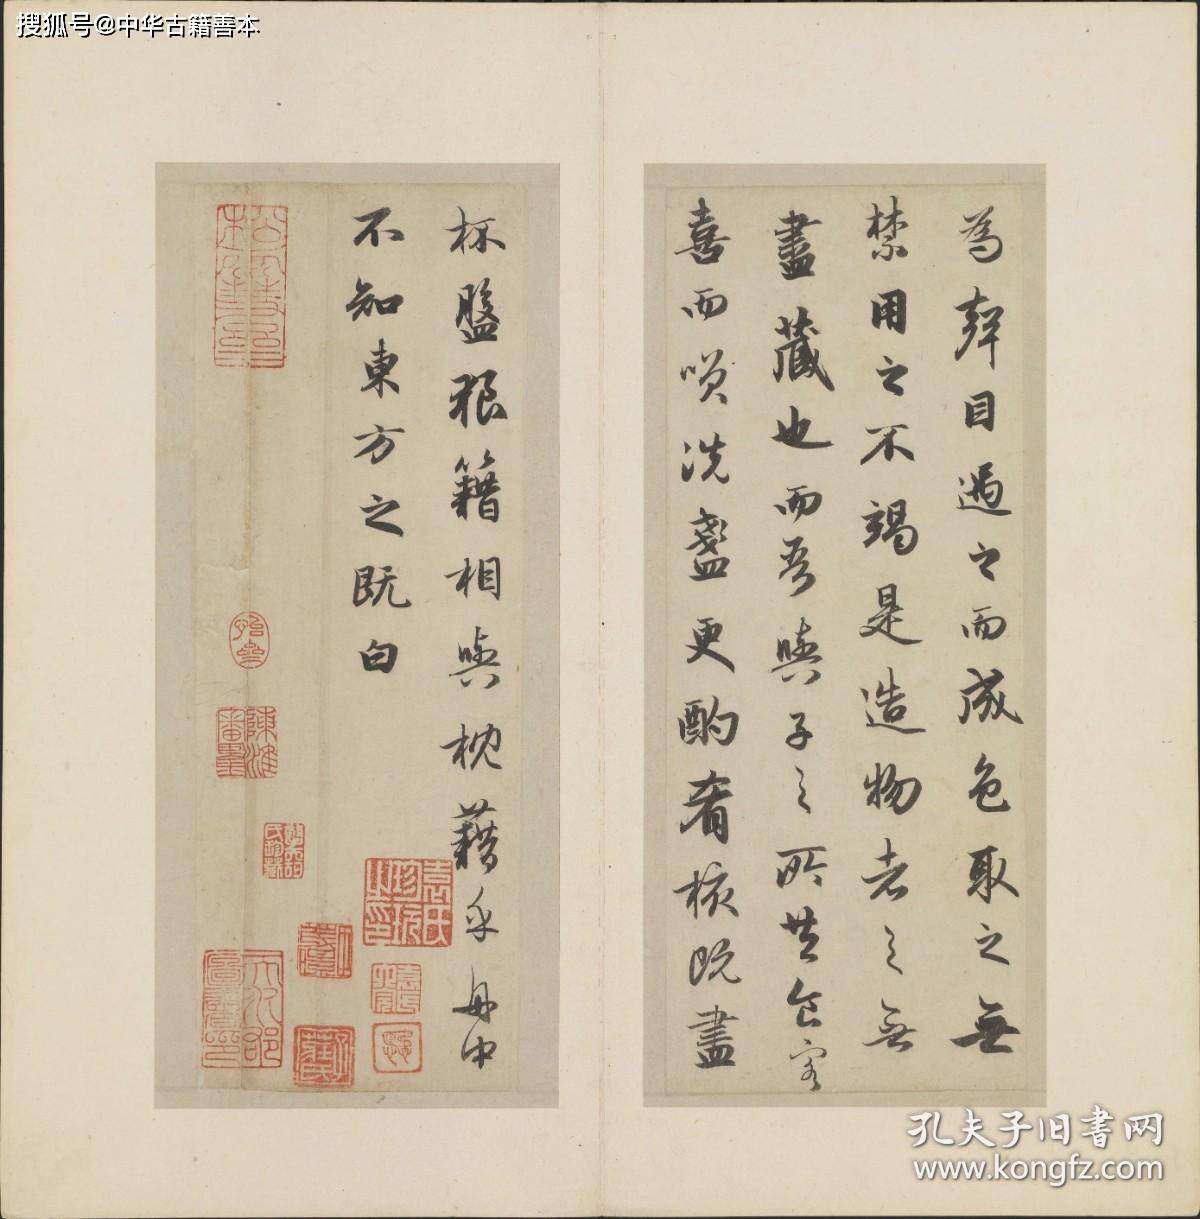 搜狐号@中华古籍善本
為聲目遇之而成色取之無
禁用之不竭是造物者之無
盡藏也而吾與子之所共食客
喜而咲洗盞更酌肴核既盡
杯盤狼籍相與枕藉乎舟中
不知東方之既白
孔夫子旧书网
www.kongfz.com